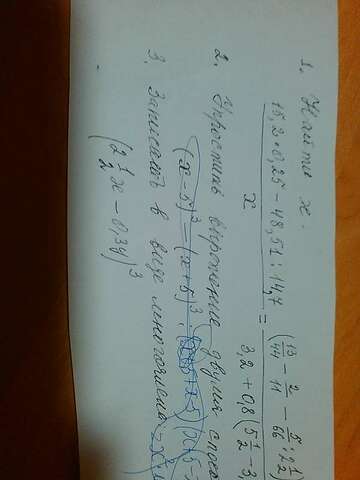 1. Найти x.
15,2·0,25 - 48,51:14,7 / x = (13/44 - 2/11 - 5/66 : 2 1/2) / 3,2 + 0,8(5 1/2 - 3,
2. Упростить выражение двумя спосо
(x-5)² - (x+5)³
3. Записать в виде многочлена
(2 1/2 x - 0,3y)³